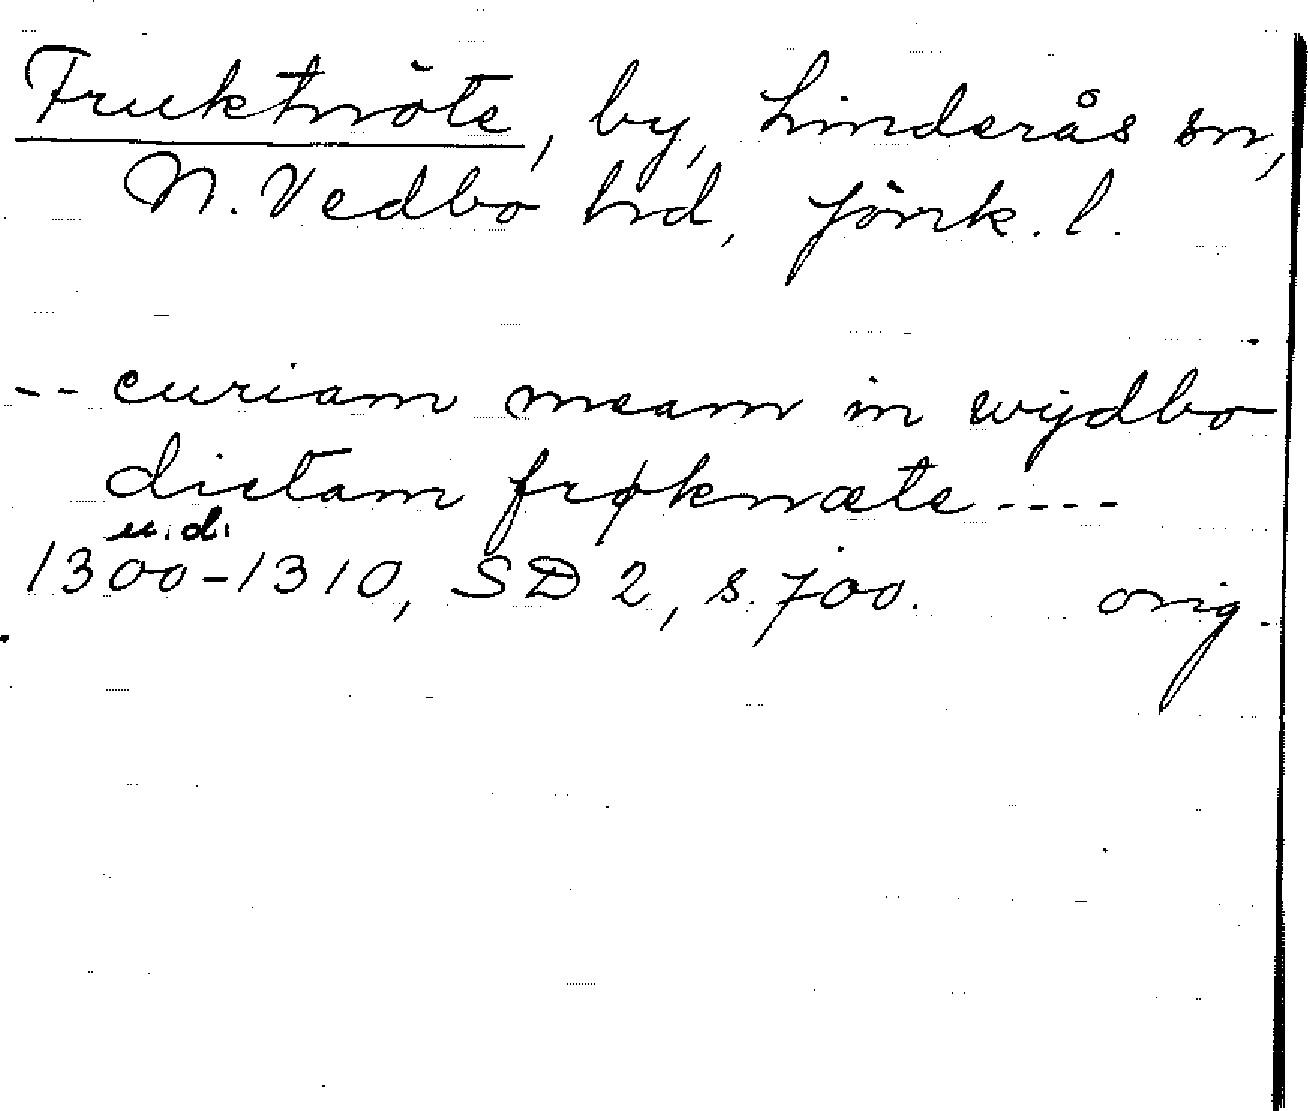 Fruktnöte, by, Linderås sn,
N. Vedbo hd, Jönk. l.
-- curiam meam in wydbo
dictam frøknæte ----
u. d.
1300-1310, SD 2, s. 700. orig.